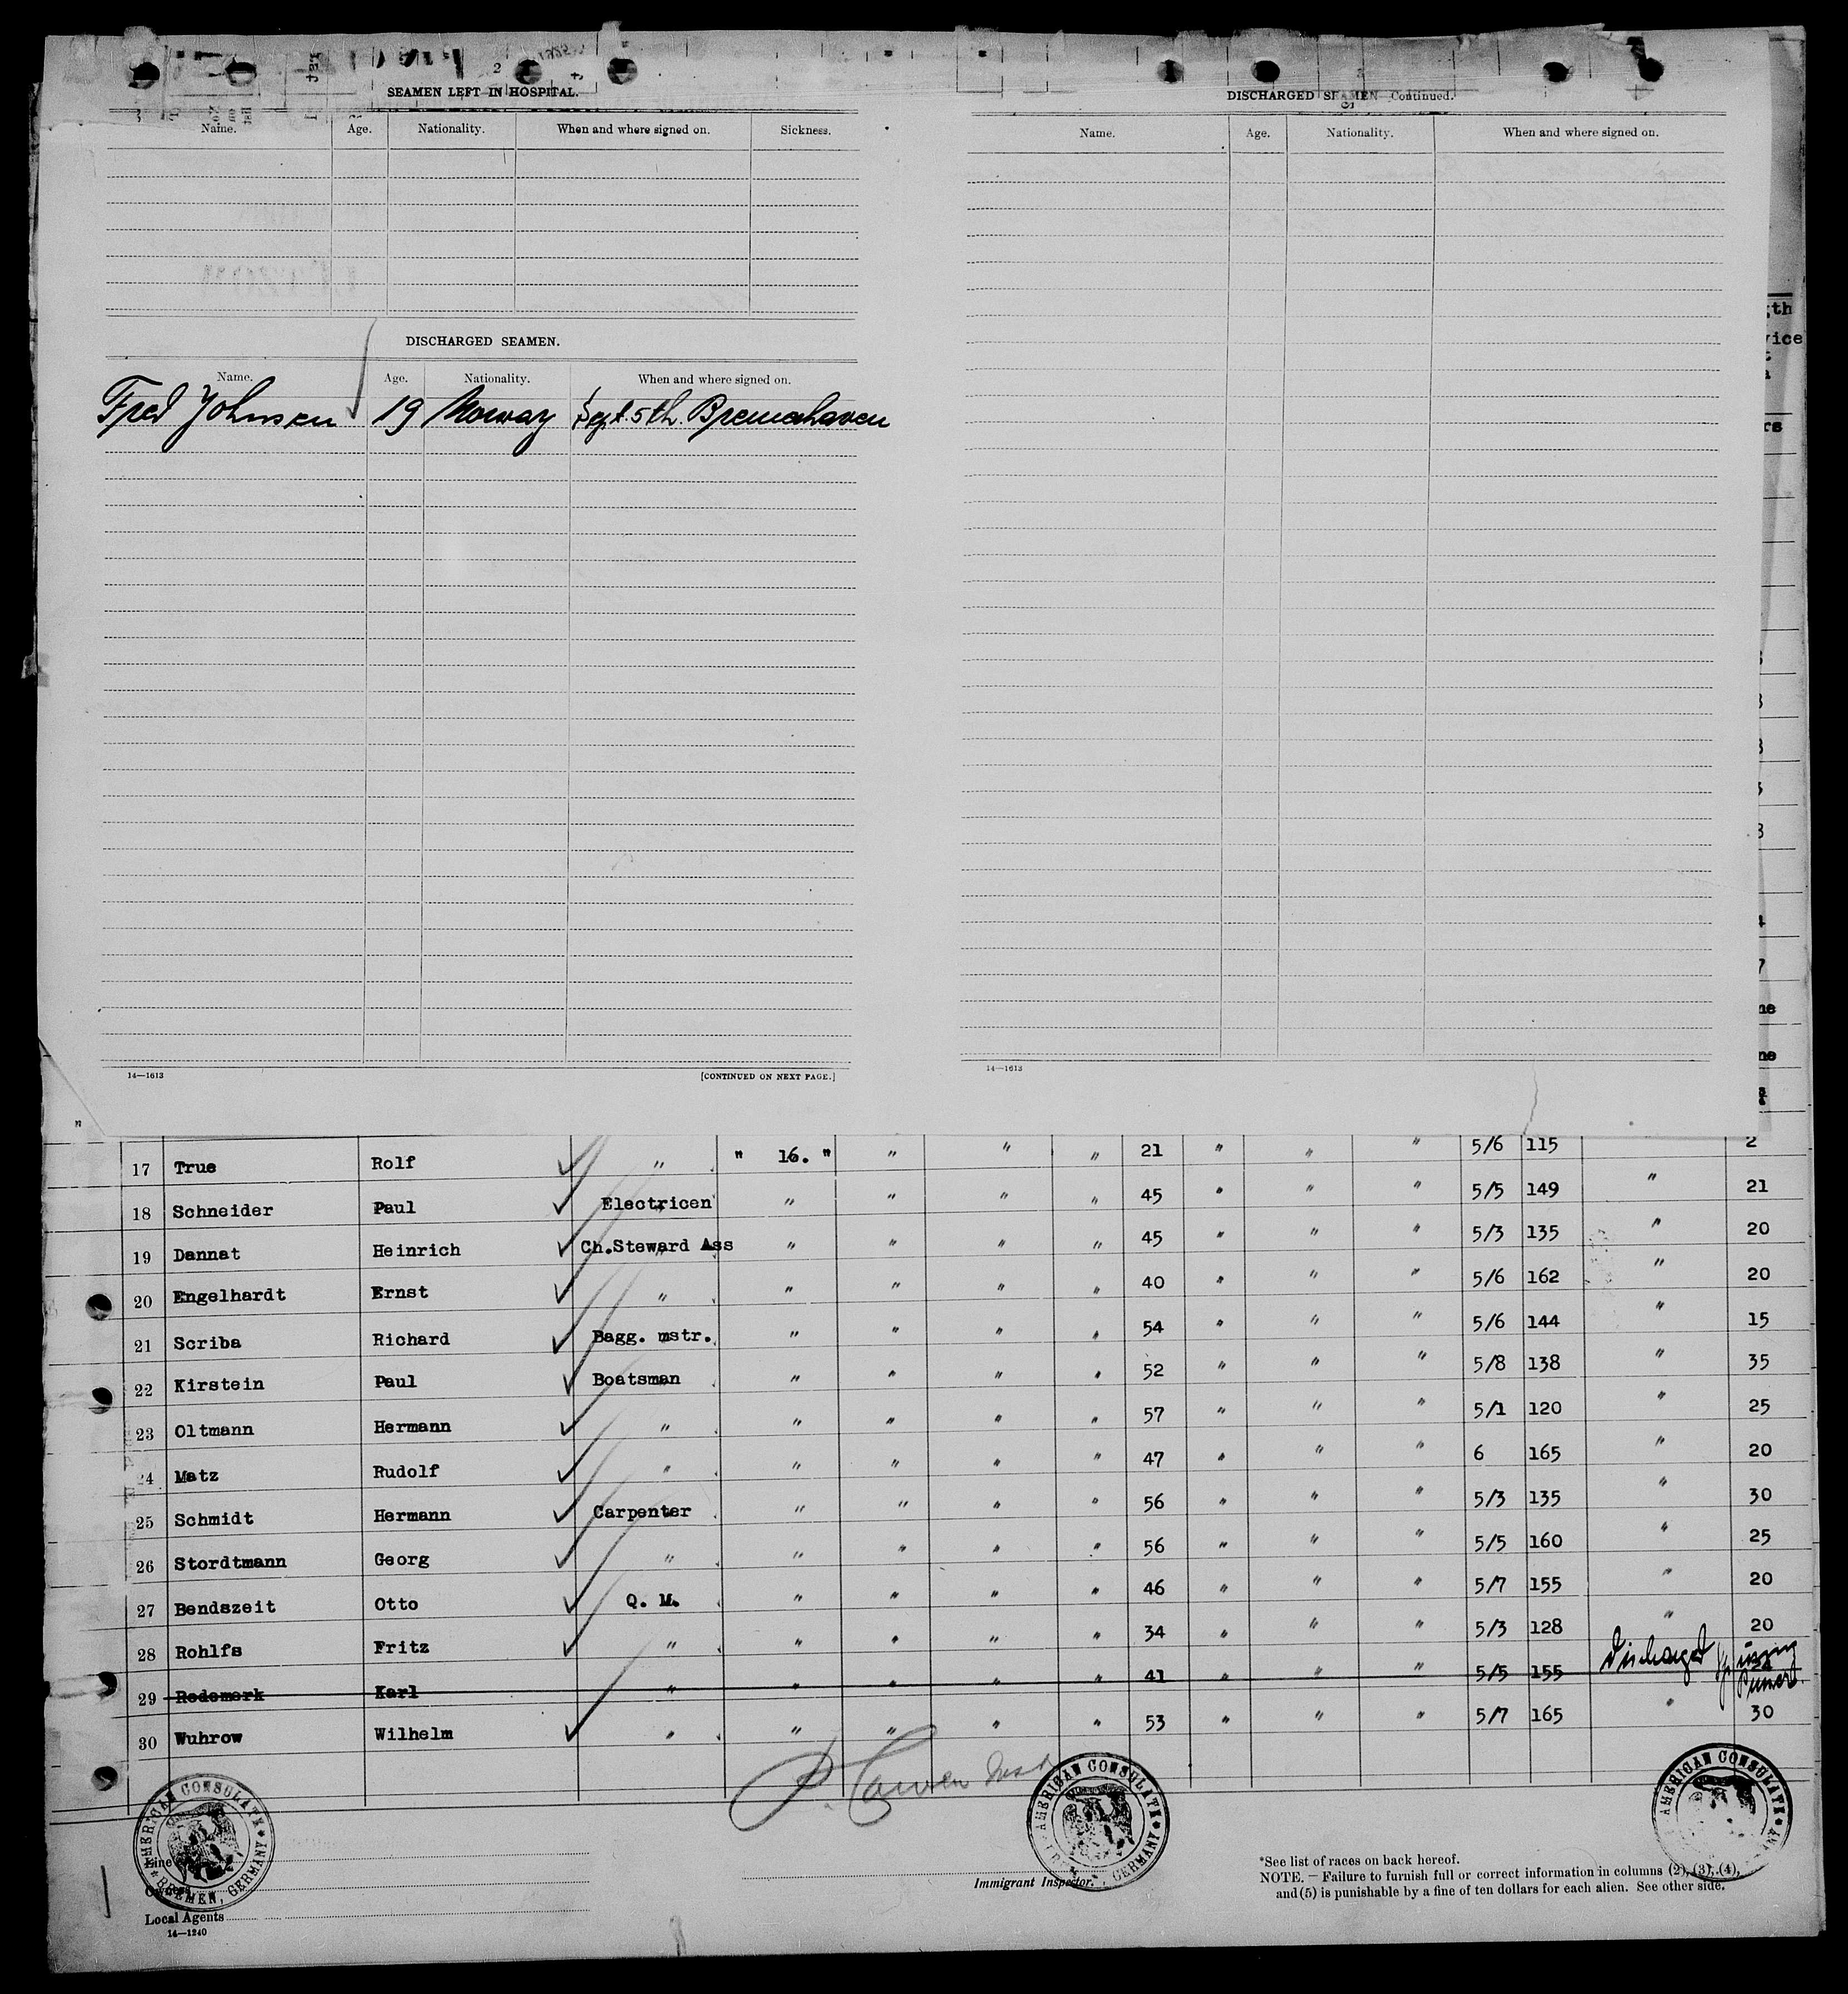 2
SEAMEN LEFT IN HOSPITAL.
Name. Age. Nationality. When and where signed on. Sickness.
DISCHARGED SEAMEN.
Name. Age. Nationality. When and where signed on.
Fred Johnsen 19 Norway Sept. 5th. Bremerhaven
14—1613 [CONTINUED ON NEXT PAGE.]
DISCHARGED SEAMEN—Continued.
Name. Age. Nationality. When and where signed on.
14—1613
17 True Rolf " " 16. " " " " 21 " " " 5/6 115 2
18 Schneider Paul Electricen " " " " 45 " " " 5/5 149 " 21
19 Dannat Heinrich Ch.Steward Ass " " " " 45 " " " 5/3 135 " 20
20 Engelhardt Ernst " " " " " 40 " " " 5/6 162 " 20
21 Scriba Richard Bagg. mstr. " " " " 54 " " " 5/6 144 " 15
22 Kirstein Paul Boatsman " " " " 52 " " " 5/8 138 " 35
23 Oltmann Hermann " " " " " 57 " " " 5/1 120 " 25
24 Matz Rudolf " " " " " 47 " " " 6 165 " 20
25 Schmidt Hermann Carpenter " " " " 56 " " " 5/3 135 " 30
26 Stordtmann Georg " " " " " 56 " " " 5/5 160 " 25
27 Bendszeit Otto Q. M. " " " " 46 " " " 5/7 155 " 20
28 Rohlfs Fritz " " " " " 34 " " " 5/3 128 " 20
29 Redemerk Karl " " " " " 41 " " " 5/5 155 Discharged
30 Wuhrow Wilhelm " " " " " 53 " " " 5/7 165 " 30
AMERICAN CONSULATE
BREMEN, GERMANY
AMERICAN CONSULATE
GERMANY
AMERICAN CONSULATE
Line
Owners
Local Agents
14—1240
Immigrant Inspector.
*See list of races on back hereof.
NOTE.—Failure to furnish full or correct information in columns (2), (3), (4),
and (5) is punishable by a fine of ten dollars for each alien. See other side.